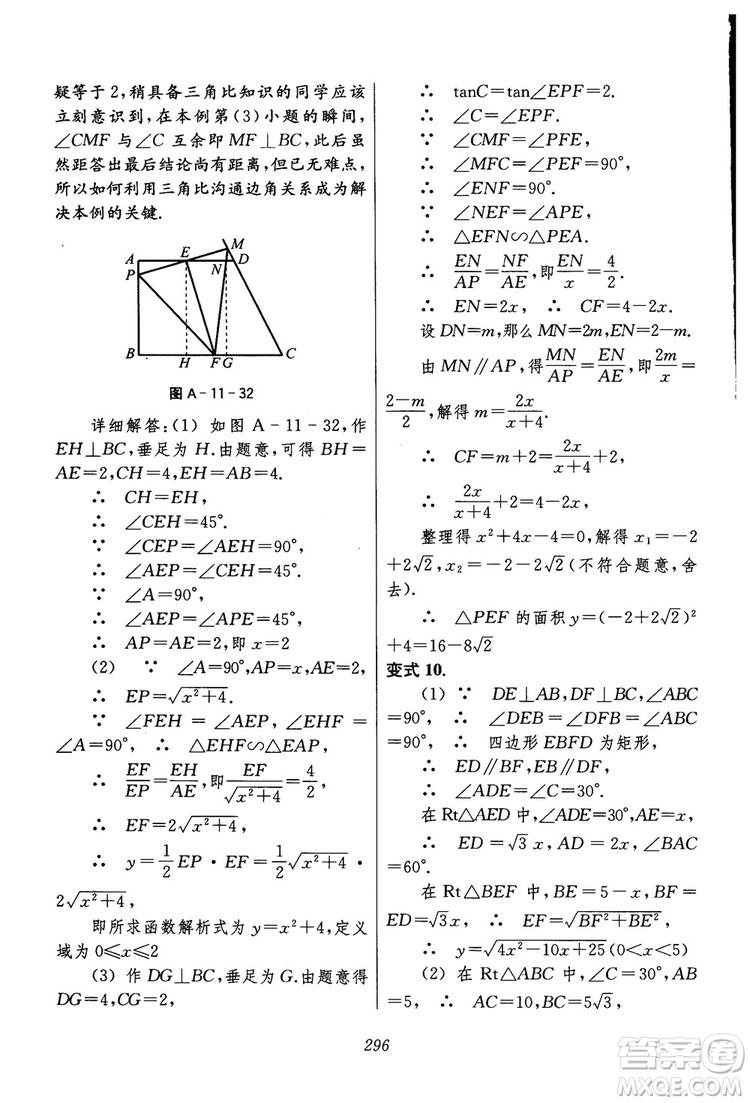 疑等于2,稍具备三角比知识的同学应该
立刻意识到,在本例第(3)小题的瞬间,
∠CMF 与∠C 互余即 MF⊥BC,此后虽
然距答出最后结论尚有距离,但已无难点,
所以如何利用三角比沟通边角关系成为解
决本例的关键.
A E M D
P N
B H F G C
图 A-11-32
详细解答:(1) 如图 A-11-32,作
EH⊥BC,垂足为 H.由题意,可得 BH=
AE=2,CH=4,EH=AB=4.
∴ CH=EH,
∴ ∠CEH=45°.
∵ ∠CEP=∠AEH=90°,
∴ ∠AEP=∠CEH=45°.
∵ ∠A=90°,
∴ ∠AEP=∠APE=45°,
∴ AP=AE=2,即 x=2
(2) ∵ ∠A=90°,AP=x,AE=2,
∴ EP=√(x²+4).
∵ ∠FEH=∠AEP,∠EHF=
∠A=90°, ∴ △EHF∽△EAP,
∴ EF/EP=EH/AE,即EF/√(x²+4)=4/2,
∴ EF=2√(x²+4),
∴ y=1/2 EP·EF=1/2√(x²+4)·
2√(x²+4),
即所求函数解析式为 y=x²+4,定义
域为0⩽x⩽2
(3) 作 DG⊥BC,垂足为 G.由题意得
DG=4,CG=2,
∴ tanC=tan∠EPF=2.
∴ ∠C=∠EPF.
∵ ∠CMF=∠PFE,
∴ ∠MFC=∠PEF=90°,
∴ ∠ENF=90°.
∵ ∠NEF=∠APE,
∴ △EFN∽△PEA.
∴ EN/AP=NF/AE,即EN/x=4/2.
∴ EN=2x, ∴ CF=4-2x.
设 DN=m,那么 MN=2m,EN=2-m.
由 MN∥AP,得MN/AP=EN/AE,即2m/x=
(2-m)/2,解得 m=2x/(x+4).
∴ CF=m+2=2x/(x+4)+2,
∴ 2x/(x+4)+2=4-2x,
整理得 x²+4x-4=0,解得 x₁=-2
+2√2,x₂=-2-2√2(不符合题意,舍
去).
∴ △PEF 的面积 y=(-2+2√2)²
+4=16-8√2
变式 10.
(1) ∵ DE⊥AB,DF⊥BC,∠ABC
=90°, ∴ ∠DEB=∠DFB=∠ABC
=90°, ∴ 四边形 EBFD 为矩形,
∴ ED∥BF,EB∥DF,
∴ ∠ADE=∠C=30°.
在 Rt△AED 中,∠ADE=30°,AE=x,
∴ ED=√3 x,AD=2x,∠BAC
=60°.
在 Rt△BEF 中,BE=5-x,BF=
ED=√3x, ∴ EF=√(BF²+BE²),
∴ y=√(4x²-10x+25)(0<x<5)
(2) 在 Rt△ABC 中,∠C=30°,AB
=5, ∴ AC=10,BC=5√3,
296
答案圈
MXQE.COM